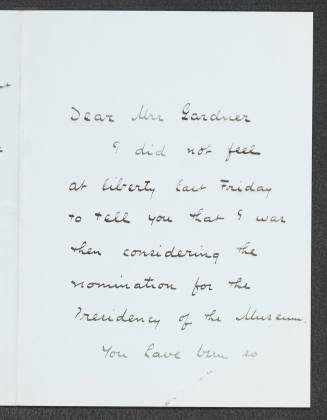 Dear Mrs Gardner
I did not feel
at liberty last Friday
to tell you that I was
then considering the
nomination for the
Presidency of the Museum.
You have been so